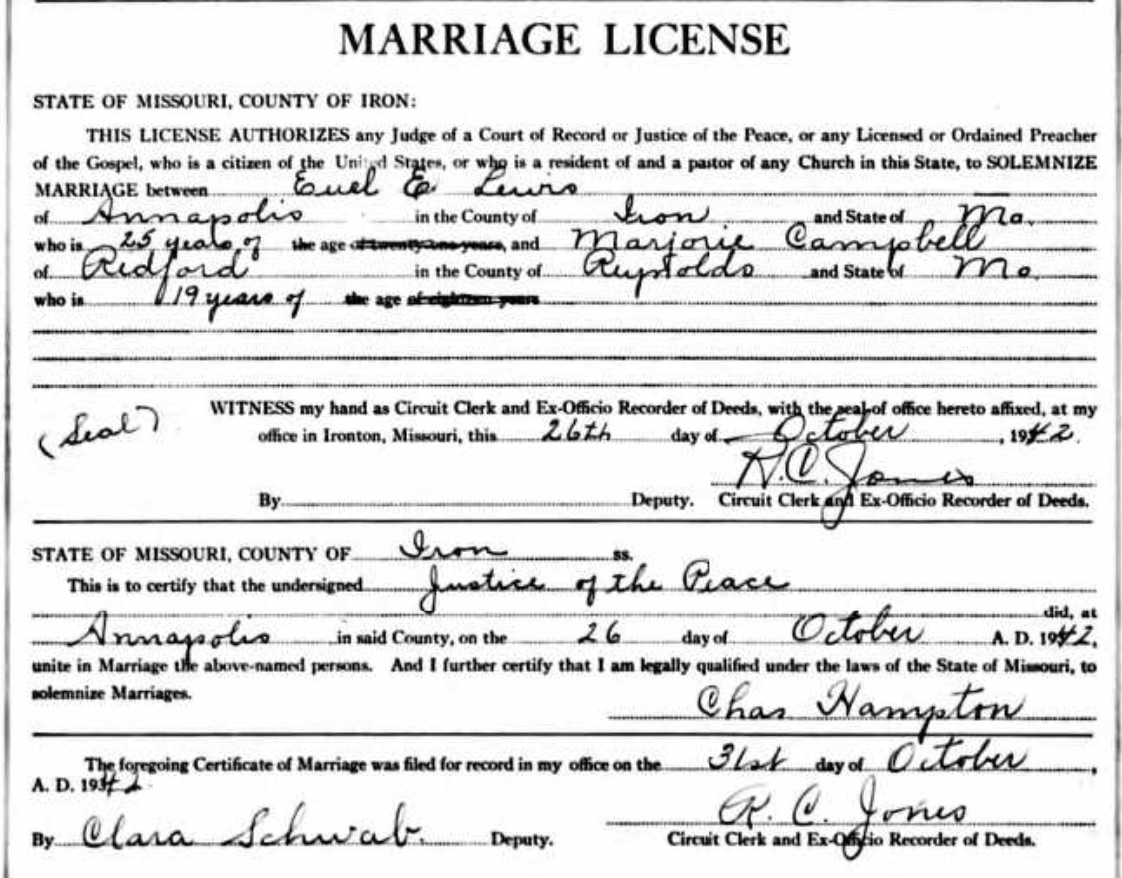 MARRIAGE LICENSE
STATE OF MISSOURI, COUNTY OF IRON:
THIS LICENSE AUTHORIZES any Judge of a Court of Record or Justice of the Peace, or any Licensed or Ordained Preacher
of the Gospel, who is a citizen of the United States, or who is a resident of and a pastor of any Church in this State, to SOLEMNIZE
MARRIAGE between Euel E. Lewis
of Annapolis in the County of Iron and State of Mo.
who is 25 years of the age of twenty-one years, and Marjorie Campbell
of Redford in the County of Reynolds and State of Mo.
who is 19 years of the age of eighteen years
(Seal) WITNESS my hand as Circuit Clerk and Ex-Officio Recorder of Deeds, with the seal of office hereto affixed, at my
office in Ironton, Missouri, this 26th day of October, 1942.
R.C. Jones
By Deputy. Circuit Clerk and Ex-Officio Recorder of Deeds.
STATE OF MISSOURI, COUNTY OF Iron ss.
This is to certify that the undersigned Justice of the Peace
did, at
Annapolis in said County, on the 26 day of October A. D. 1942,
unite in Marriage the above-named persons. And I further certify that I am legally qualified under the laws of the State of Missouri, to
solemnize Marriages.
Chas Hampton
The foregoing Certificate of Marriage was filed for record in my office on the 31st day of October,
A. D. 1942
R. C. Jones
By Clara Schwab. Deputy. Circuit Clerk and Ex-Officio Recorder of Deeds.